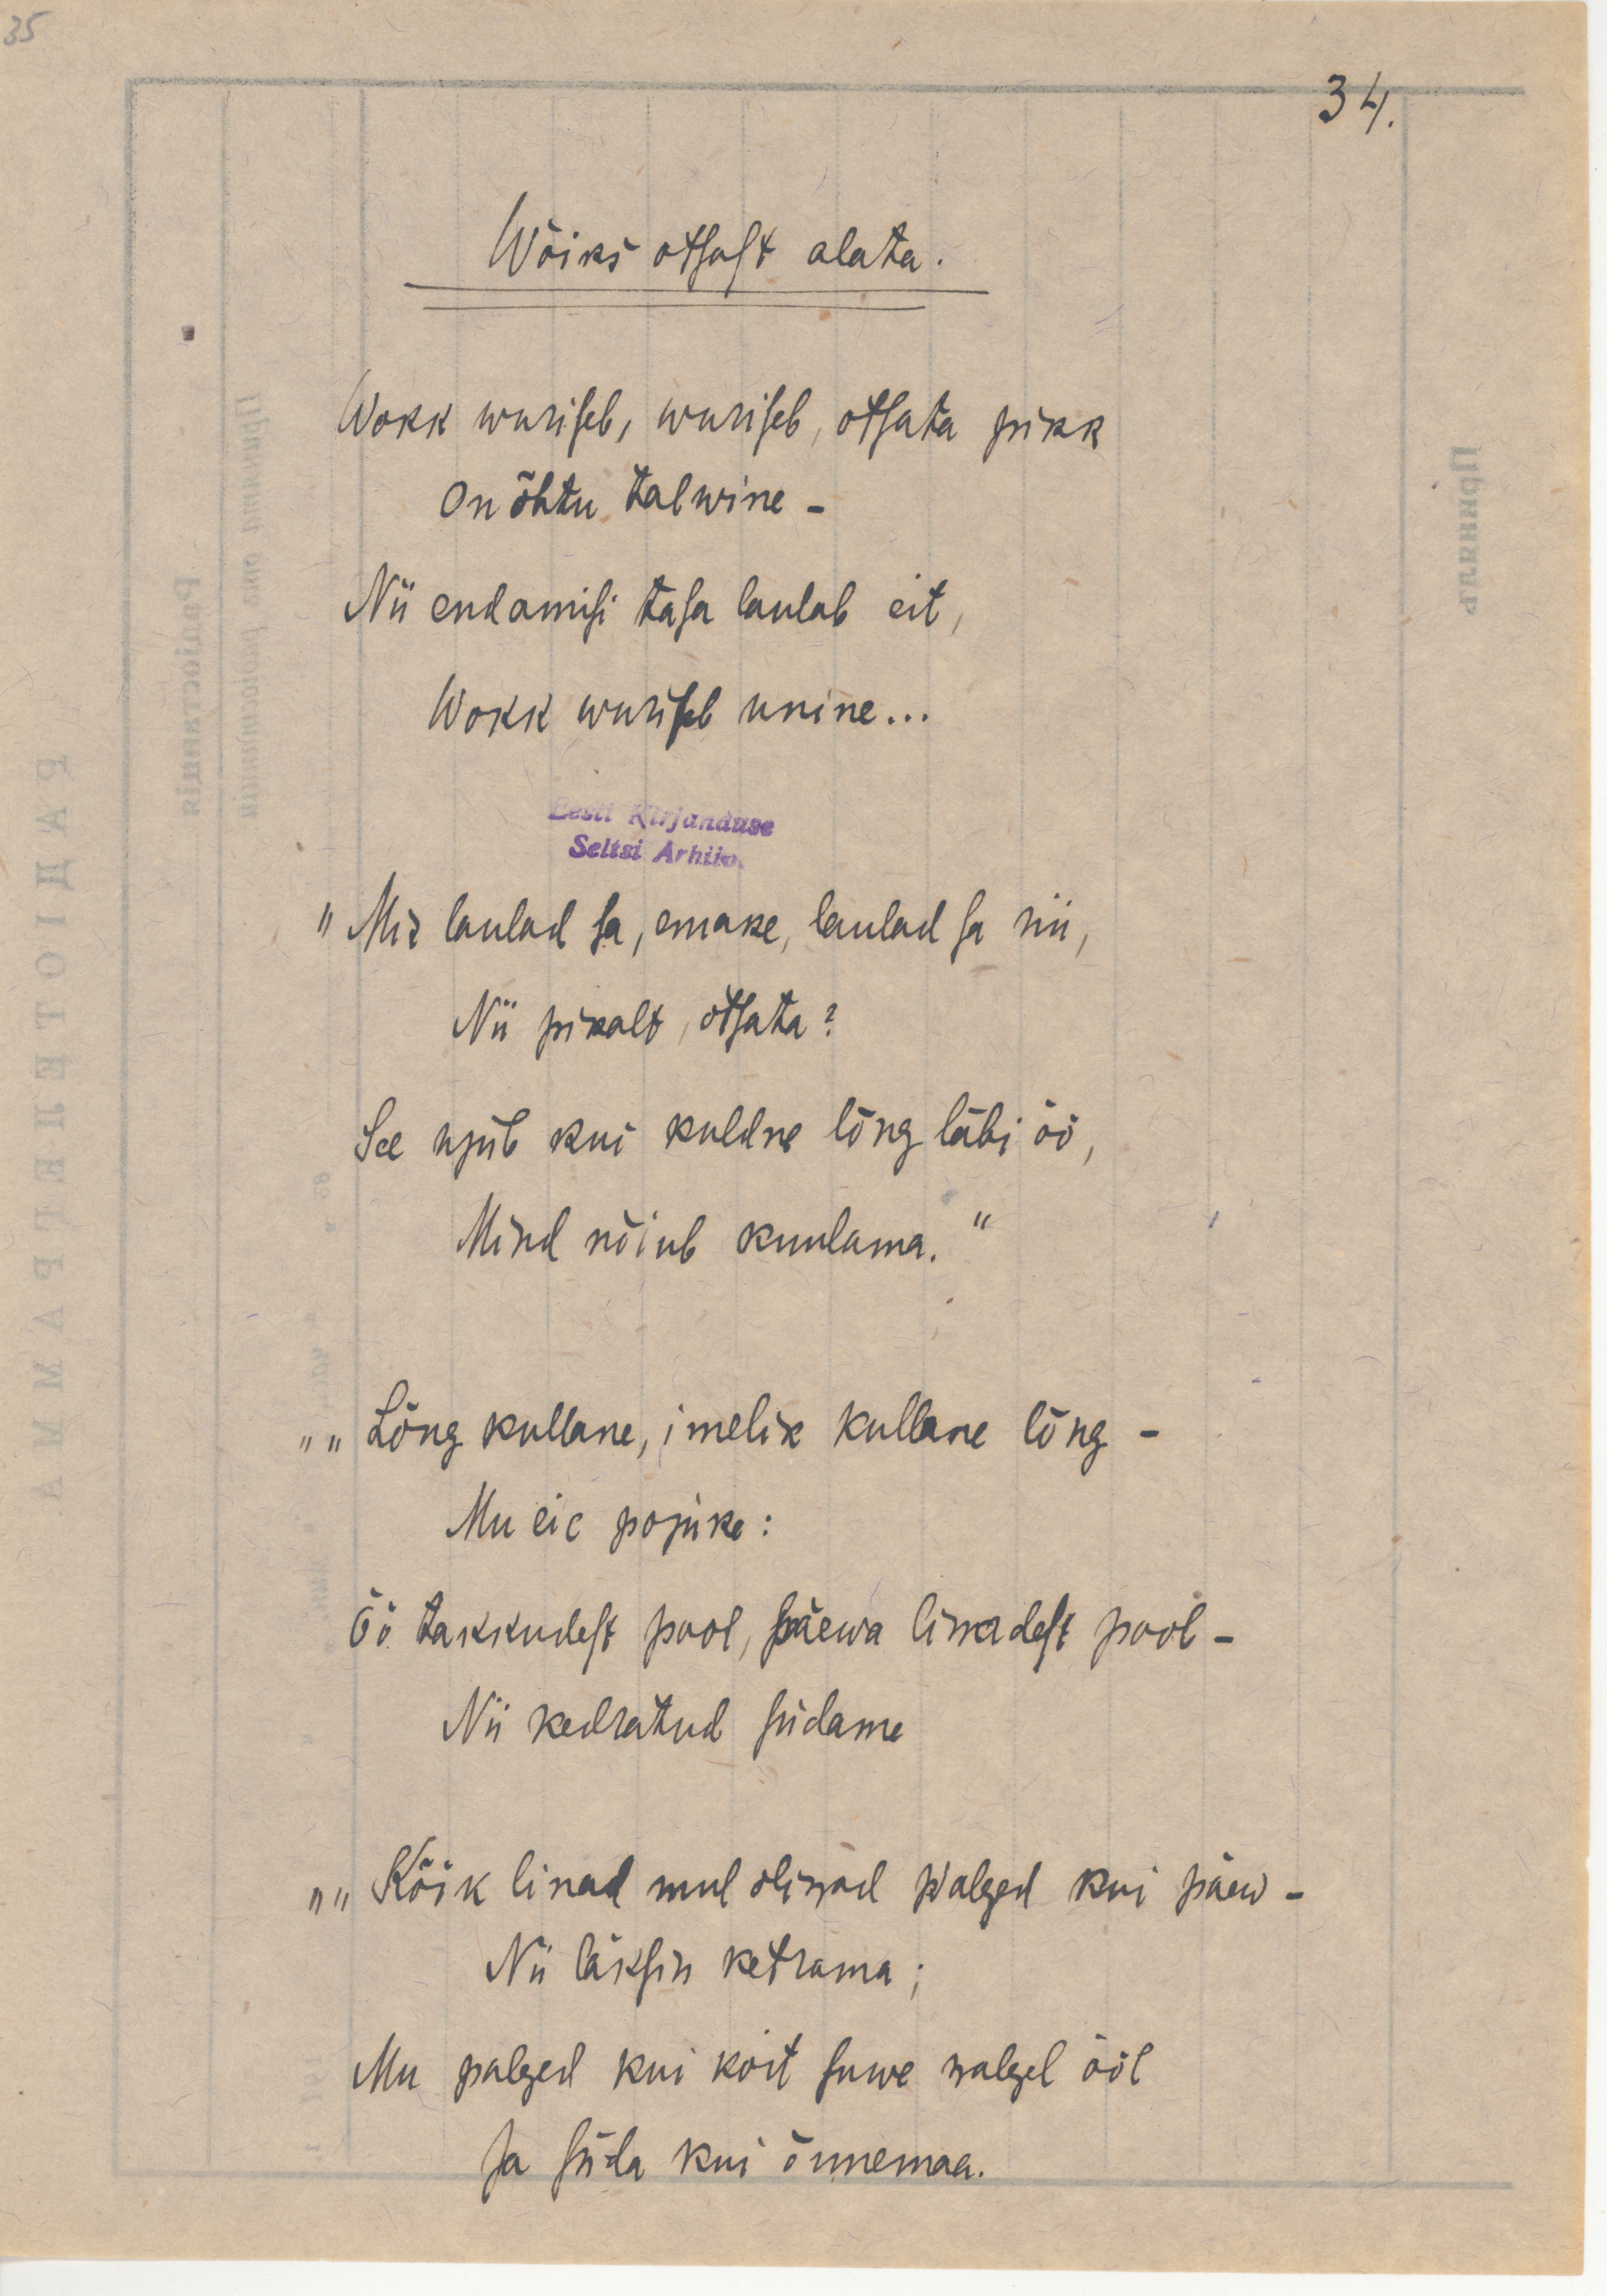 35
34.
Wõiks otsast alata.
Wokk wuriseb, wuriseb, otsata pikk
On õhtu talwine -
Nii endamisi tasa laulab eit,
Wokk wuriseb unine...
Eesti Kirjanduse
Seltsi Arhiiv.
"Mis laulad sa, emake, laulad sa nii,
Nii pikalt, otsata?
See ujub kui kuldne lõng läbi öö,
Mind nõiub kuulama."
""Lõng kullane, imelik kullane lõng -
Mu eie pojuke:
Öö takkudest pool, päewa linadest pool -
Nii kedratud südame
""Kõik linad mul oliwad walged kui päew -
Nii läksin ketrama;
Mu palged kui koit suwe walgel ööl
Ja süda kui õnnemaa.
РАДІОТЕЛЕГРАММА
Радіостанція